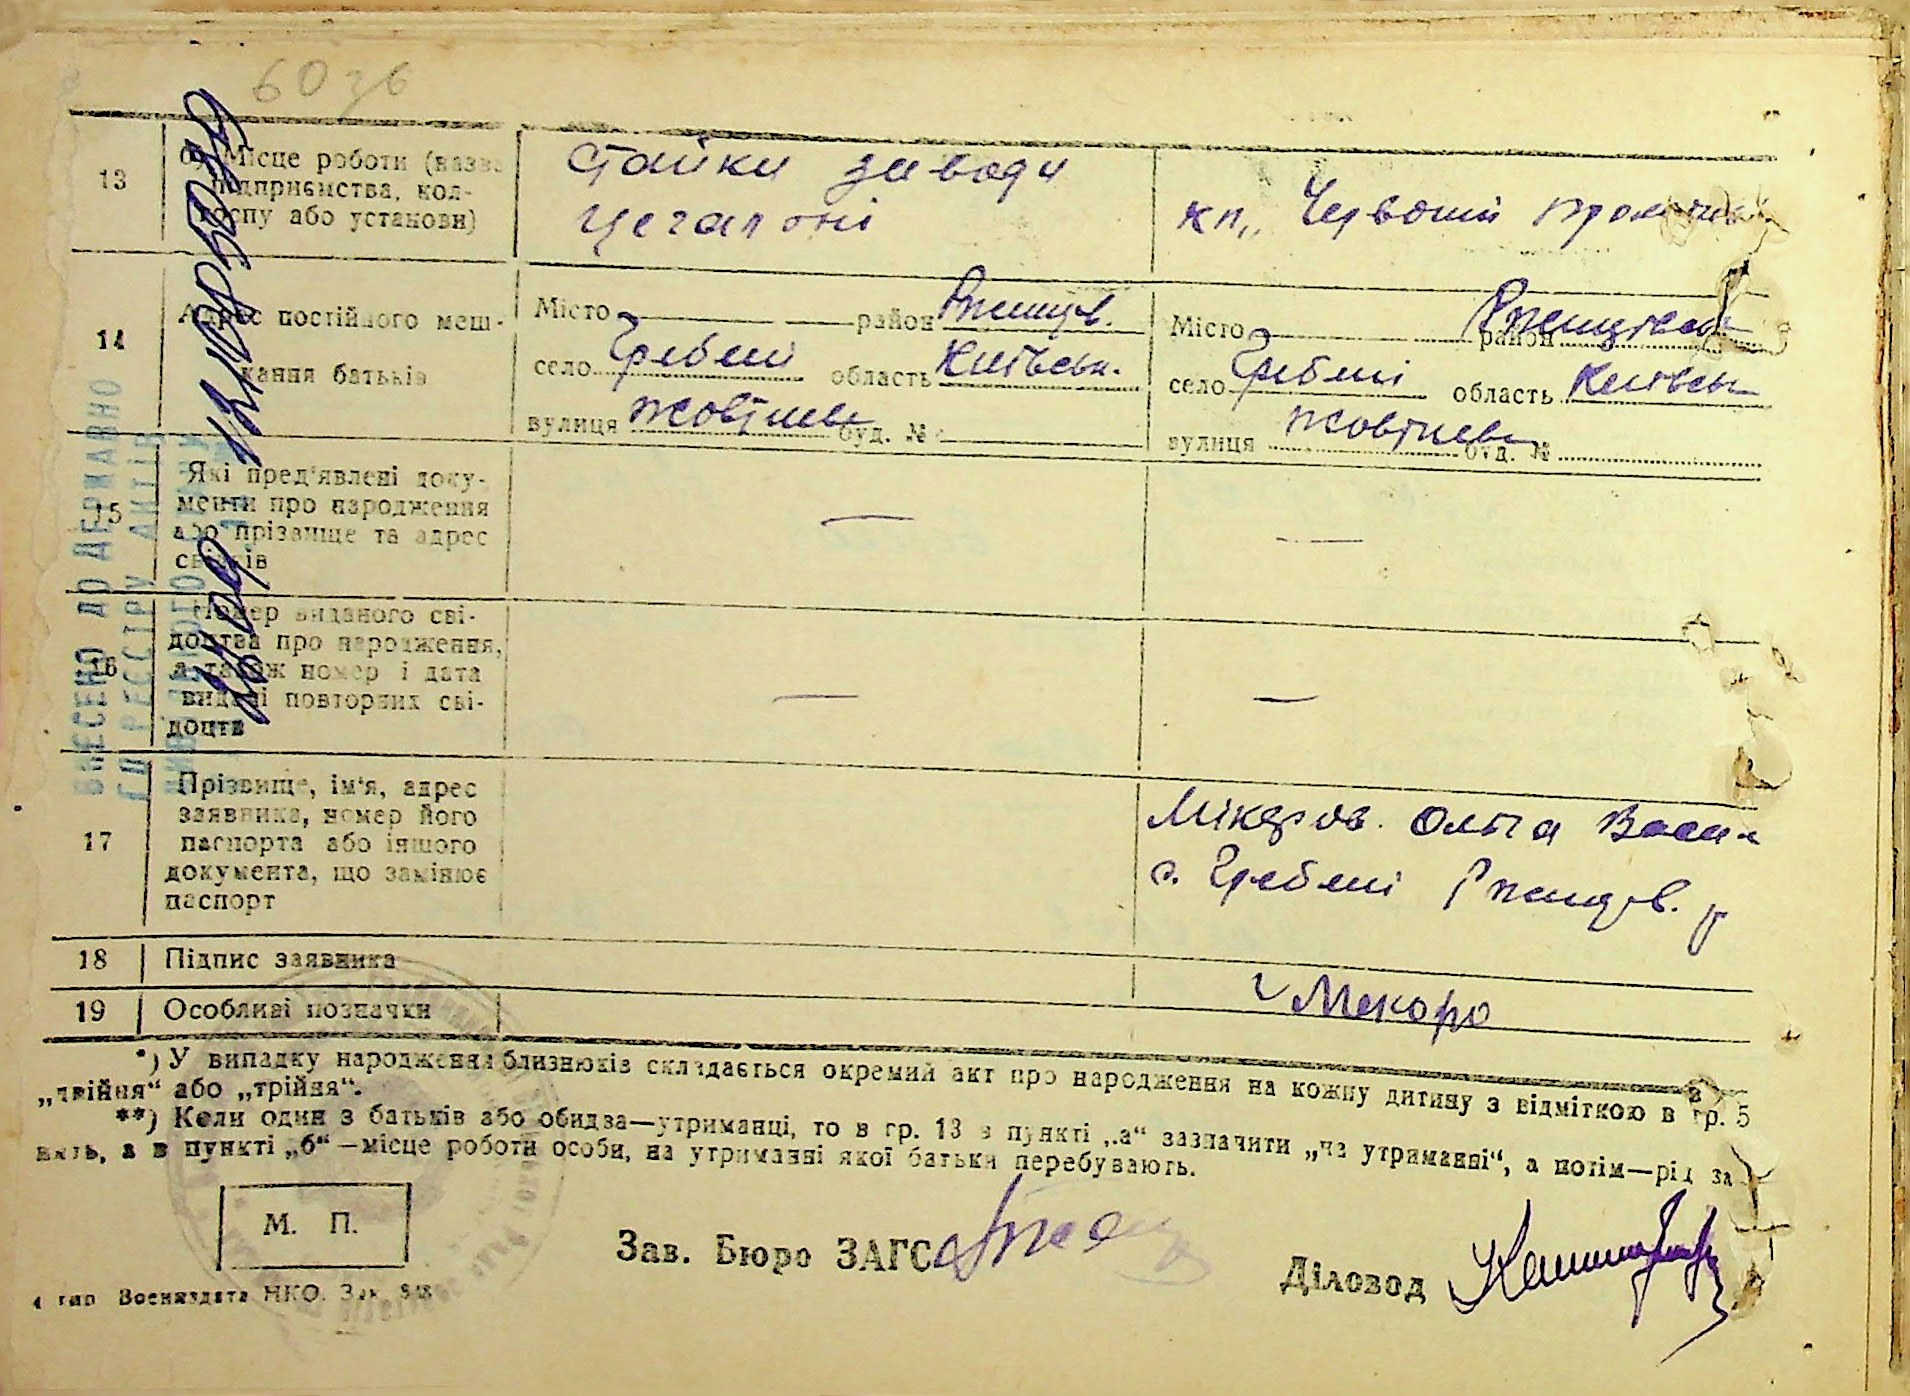 60 зв
13
б) Місце роботи (назва
підприємства, кол-
госпу або установи)
Стайки заводи
цегальні
кп„ Червоний
14
Адрес постійного меш-
кання батьків
Місто район Ржищів.
село Гребені область Київськ.
вулиця Жовтнева буд. №
Місто район
село Гребені область Київськ
вулиця Жовтнева буд. №
15
Які пред'явлені доку-
менти про народження
або прізвище та адрес
свідків
—
—
16
Номер виданого сві-
доцтва про народження,
а також номер і дата
видачі повторних сві-
доцтв
—
—
17
Прізвище, ім'я, адрес
заявника, номер його
паспорта або іншого
документа, що замінює
паспорт
Мікеров. Ольга Васил
с. Гребені Ржищів. р
18
Підпис заявника
19
Особливі позначки
*) У випадку народження близнюків складається окремий акт про народження на кожну дитину з відміткою в гр. 5
„двійня“ або „трійня“.
**) Коли один з батьків або обидва—утриманці, то в гр. 13 в пункті „а“ зазначити „на утриманні“, а потім—рід за
нять, а в пункті „б“—місце роботи особи, на утриманні якої батьки перебувають.
М. П.
Зав. Бюро ЗАГС
Діловод
4 тип Воениздата НКО. Зак
ВНЕСЕНО ДО ДЕРЖАВНО
ГО РЕЄСТРУ АКТІВ
ЦИВІЛЬНОГО СТАНУ